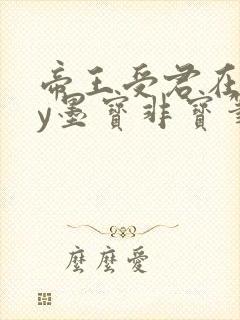 帝王受君在
y墨寶非寶
麼麼愛